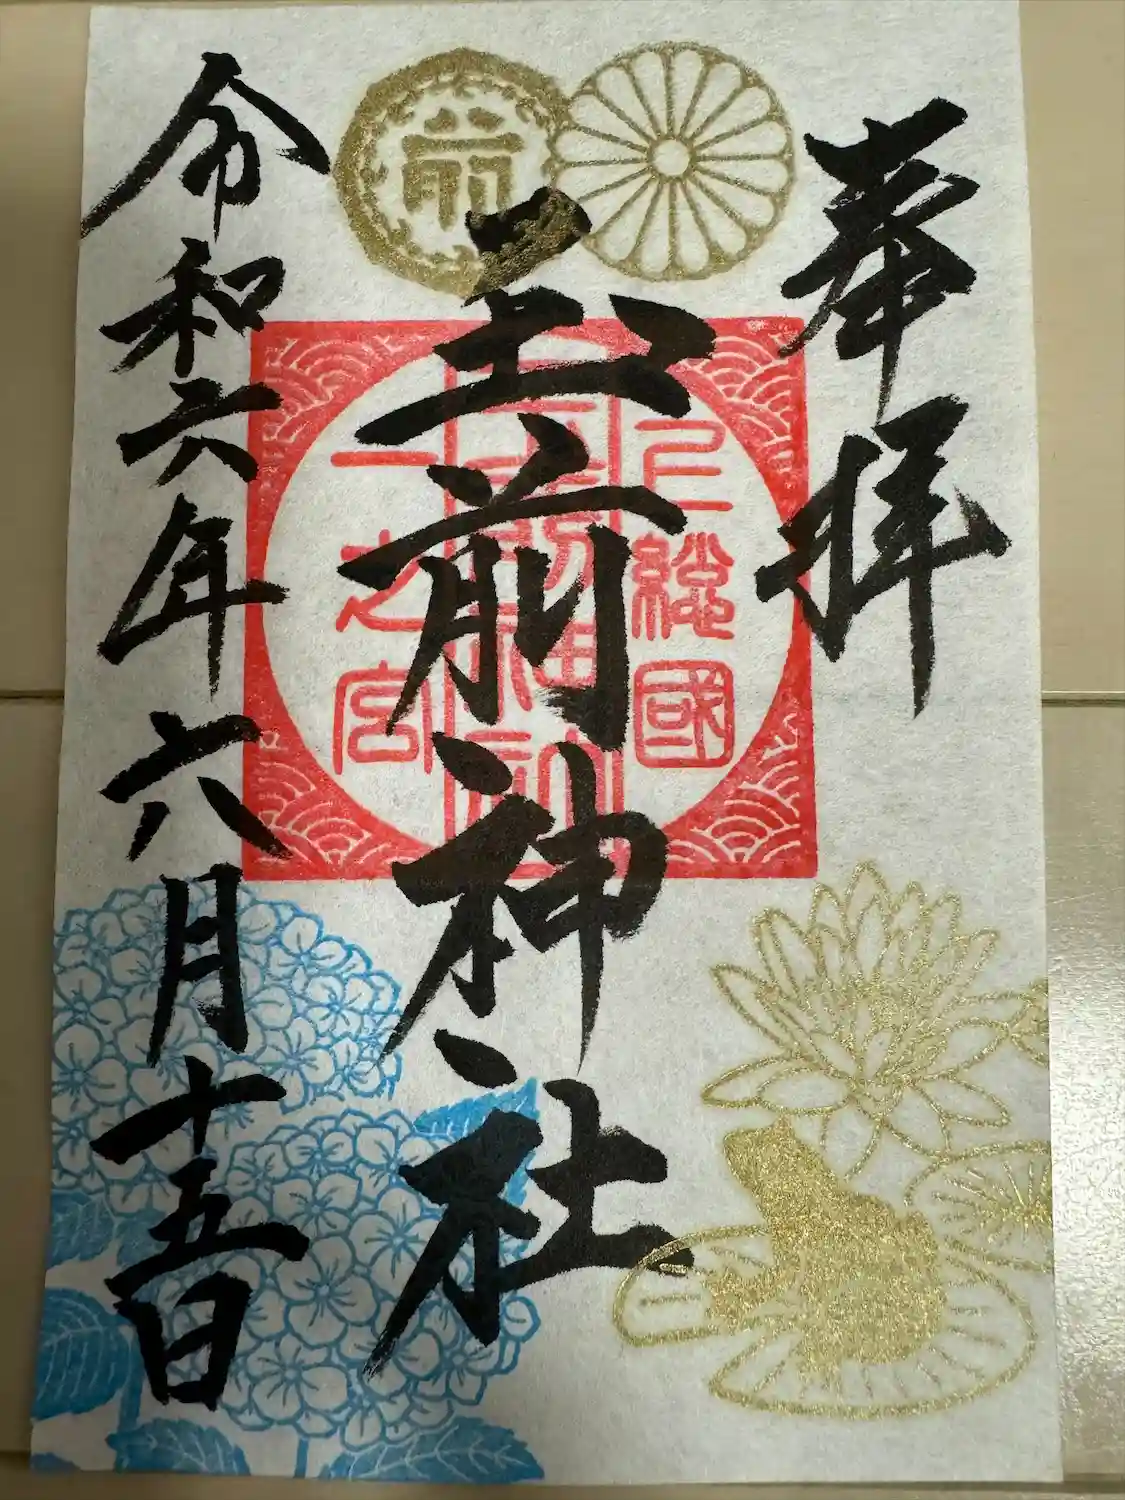 奉拝
上総國
玉前神社
一之宮
令和六年六月十五日